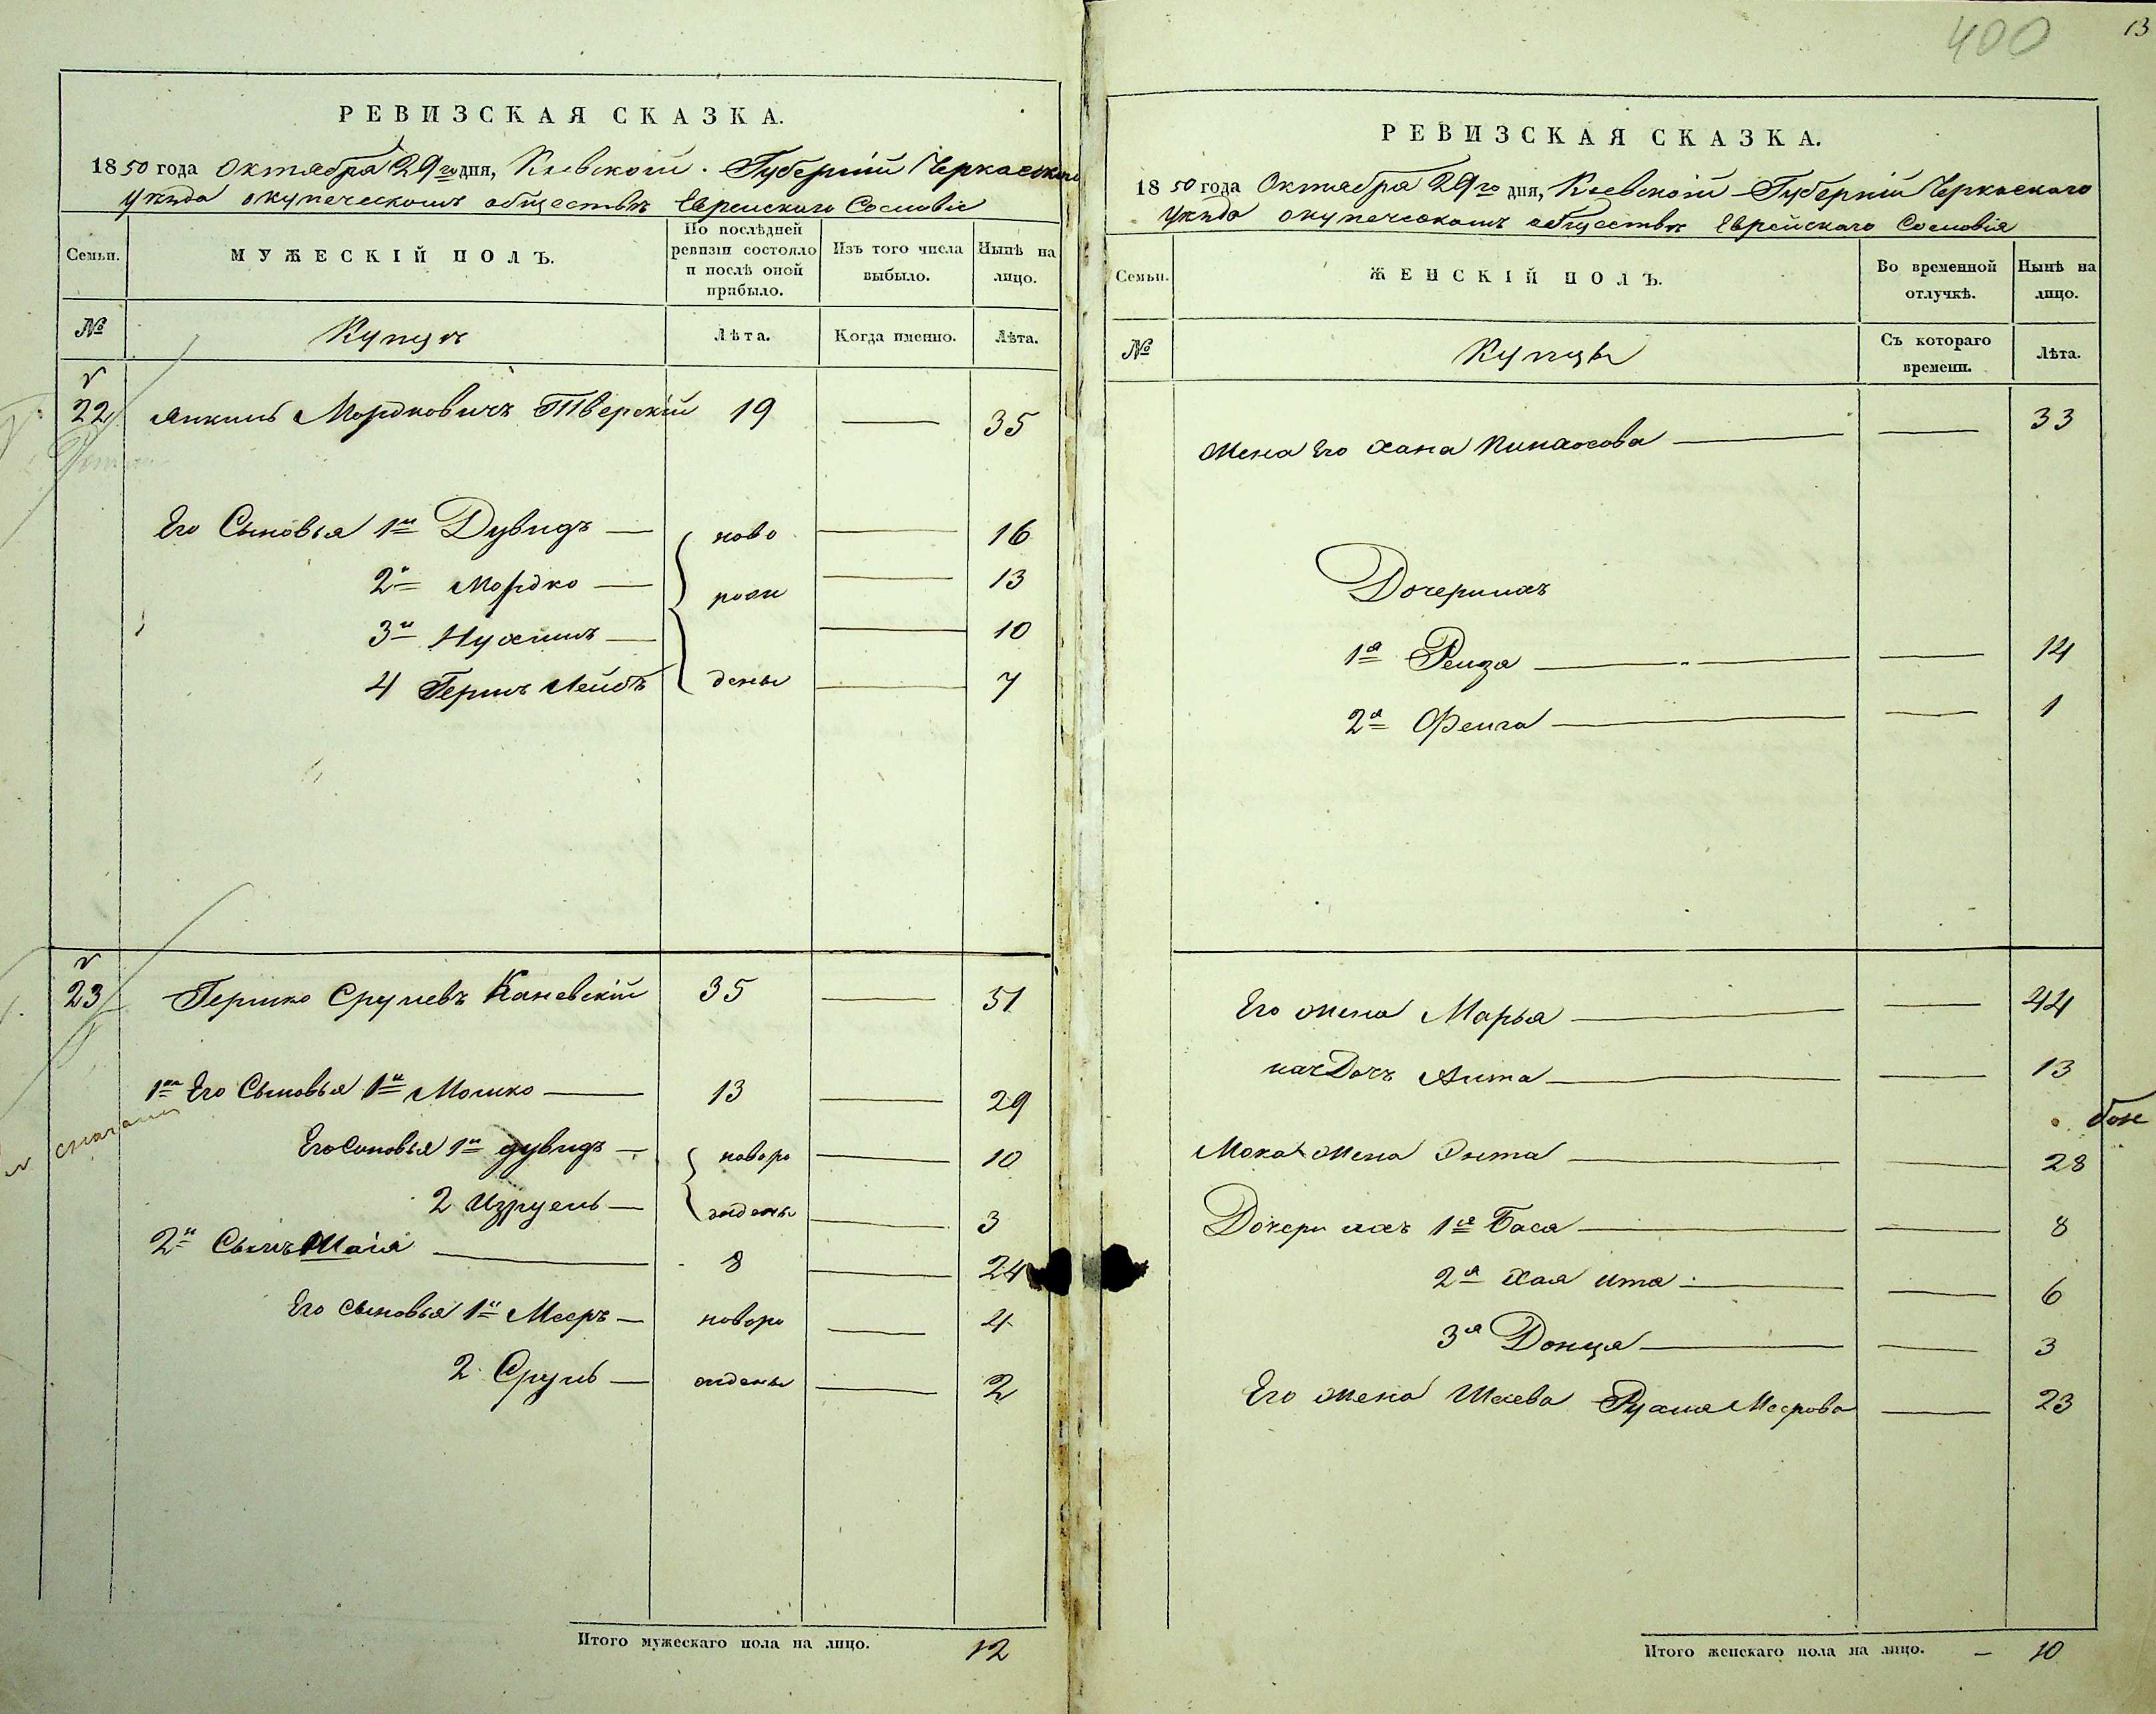 РЕВИЗСКАЯ СКАЗКА.
1850 года Октября 29го дня, Кіевской Губерніи Черкаского
Уѣзда окупеческомъ обществѣ Еврейскаго Сословія
Семьи.
МУЖЕСКІЙ ПОЛЪ.
По послѣдней ревизіи состояло и послѣ оной прибыло.
Изъ того числа выбыло.
Нынѣ на лицо.
№
Купцы
Лѣта.
Когда именно.
Лѣта.
22 Янкель Мордковичъ Тверскій 19 — 35
Его Сыновья 1й Дувидъ — ново — 16
2й Мордко — рож — 13
3й Нухимъ — — 10
4 Гершъ Лейбъ дены — 7
23 Гершко Срулевъ Каневскій 35 — 51
1й Его Сыновья 1й Мошко — 13 — 29
Его Сыновья 1й дувидъ — новоро — 10
2 Изруель — жденые — 3
2й Сынъ Шаія — 8 — 24
Его сыновья 1й Мееръ — новоро — 4
2 Сруль — жденые — 2
Итого мужескаго пола на лицо. 12
400
13
РЕВИЗСКАЯ СКАЗКА.
1850 года Октября 29го дня, Кіевской Губерніи Черкаскаго
Уѣзда окупеческомъ обществѣ Еврейскаго Сословія
Семьи.
ЖЕНСКІЙ ПОЛЪ.
Во временной отлучкѣ.
Нынѣ на лицо.
№
Купцы
Съ котораго времени.
Лѣта.
Жена Его Хана Пинхасова — — 33
Дочери ихъ
1я Рейза — — 14
2я Фейга — — 1
Его жена Марья — — 44
Дочь — — 13
жена Энта — — 28
Дочери ихъ 1я Бася — — 8
2я Хая ита — — 6
3я Донця — — 3
Его жена Шаева Рухля Меерова — 23
Итого женскаго пола на лицо. — 10